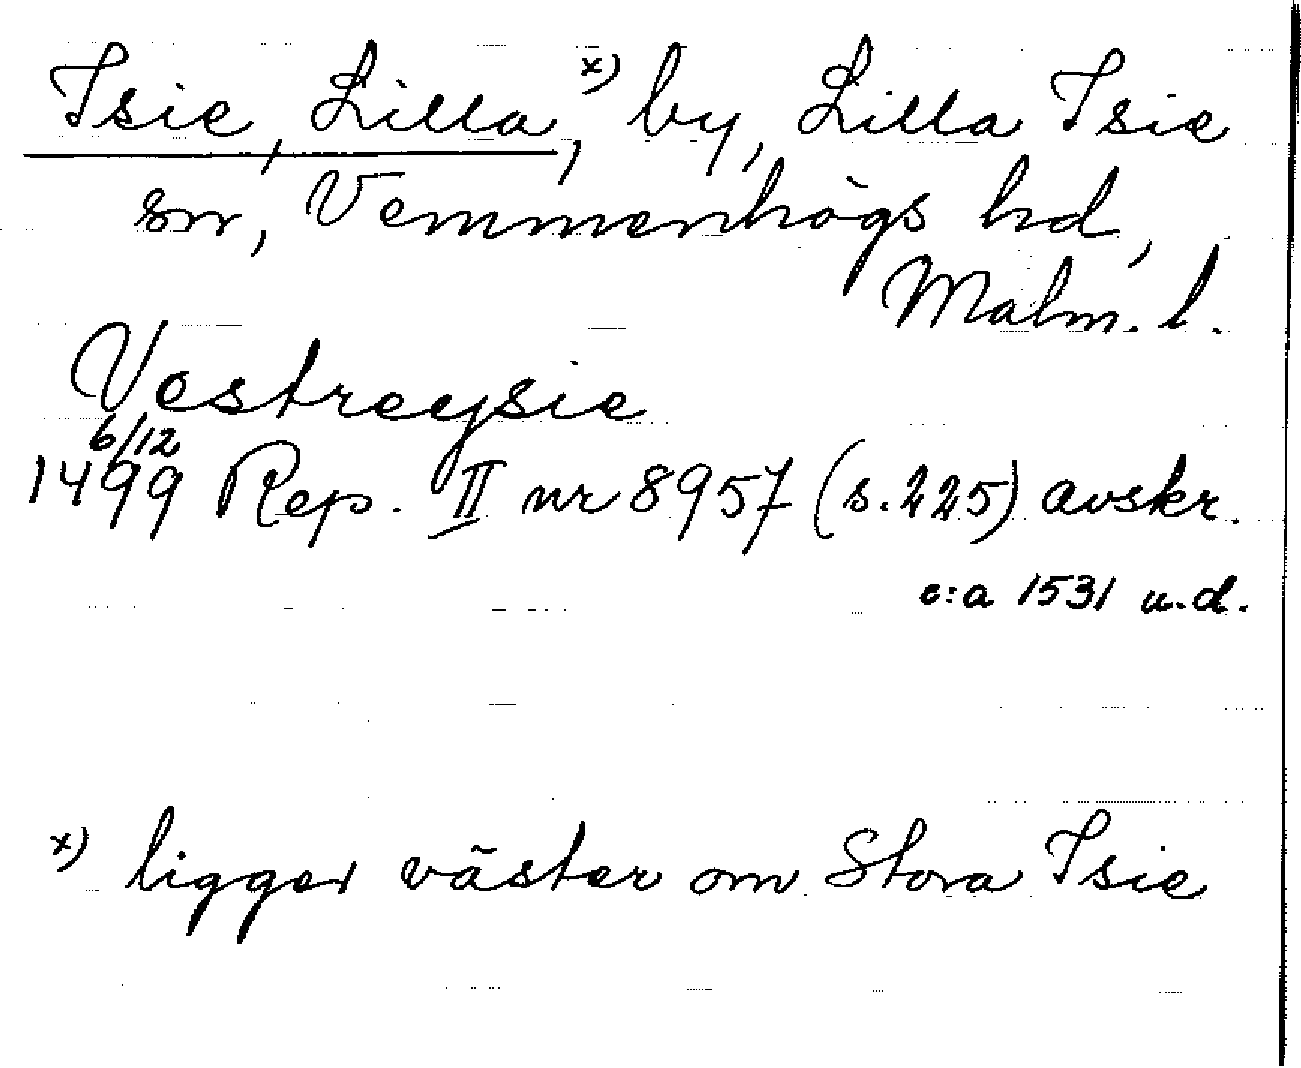 Isie, Lilla, x) by, Lilla Isie
sn, Vemmenhögs hd,
Malm. l.
Vestreysie
6/12
1499 Rep. II nr 8957 (s. 225) avskr.
c:a 1531 u.d.
x) ligger väster om Stora Isie